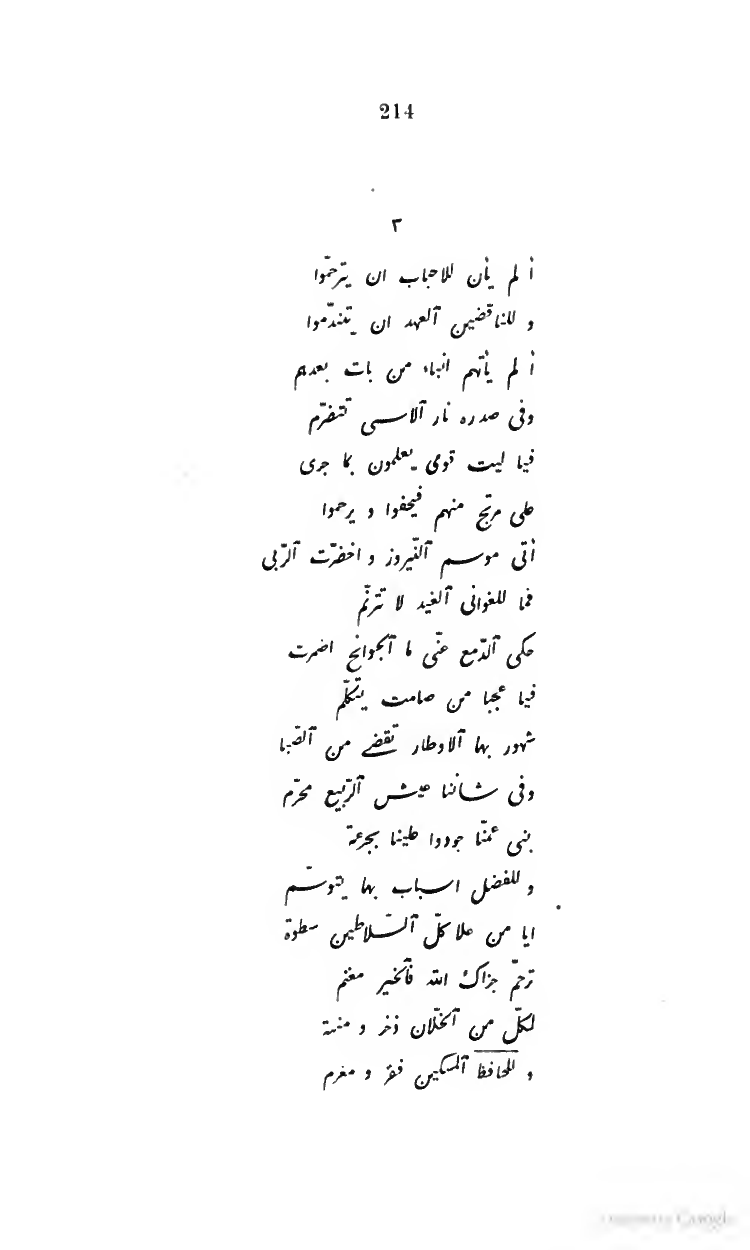 214
٣
أ لم يأن للاحباب ان يترحّموا
و للناقضين ٱلعهد ان يتندّموا
أ لم يأتهم انباء من بات بعدهم
وفى صدره نار ٱلاسى تتضرّم
فيا ليت قومى يعلمون بما جرى
على مرتج منهم فيحفوا و يرحموا
أتى موسم ٱلنّيروز و اخضرّت ٱلرّبى
فما للغوانى ٱلغيد لا تترنّم
حكى ٱلدّمع عنّى ما ٱلجوانح اضمرت
فيا عجبا من صامت يتكلّم
شهور بها ٱلاوطار تقضى من ٱلصّبا
وفى شاننا عيش ٱلرّبيع محرّم
بنى عمّنا جودوا علينا بجرعة
و للفضل اسباب بها يتوسّم
ايا من علا كلّ ٱلسّلاطين سطوة
ترحّم جزاك الله فٱلخير مغنم
لكلّ من ٱلخلّان ذخر و منية
و للحافظ ٱلمسكين فقر و مغرم
Google